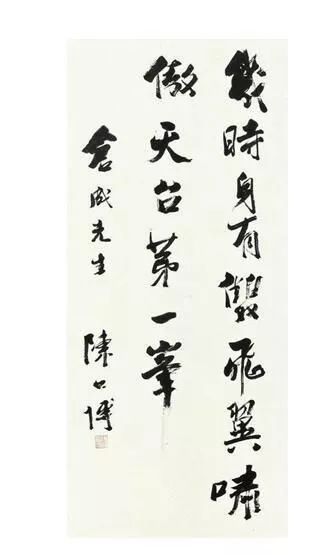 幾時身有雙飛翼嘯
傲天台第一峯
倉成先生
陳公博